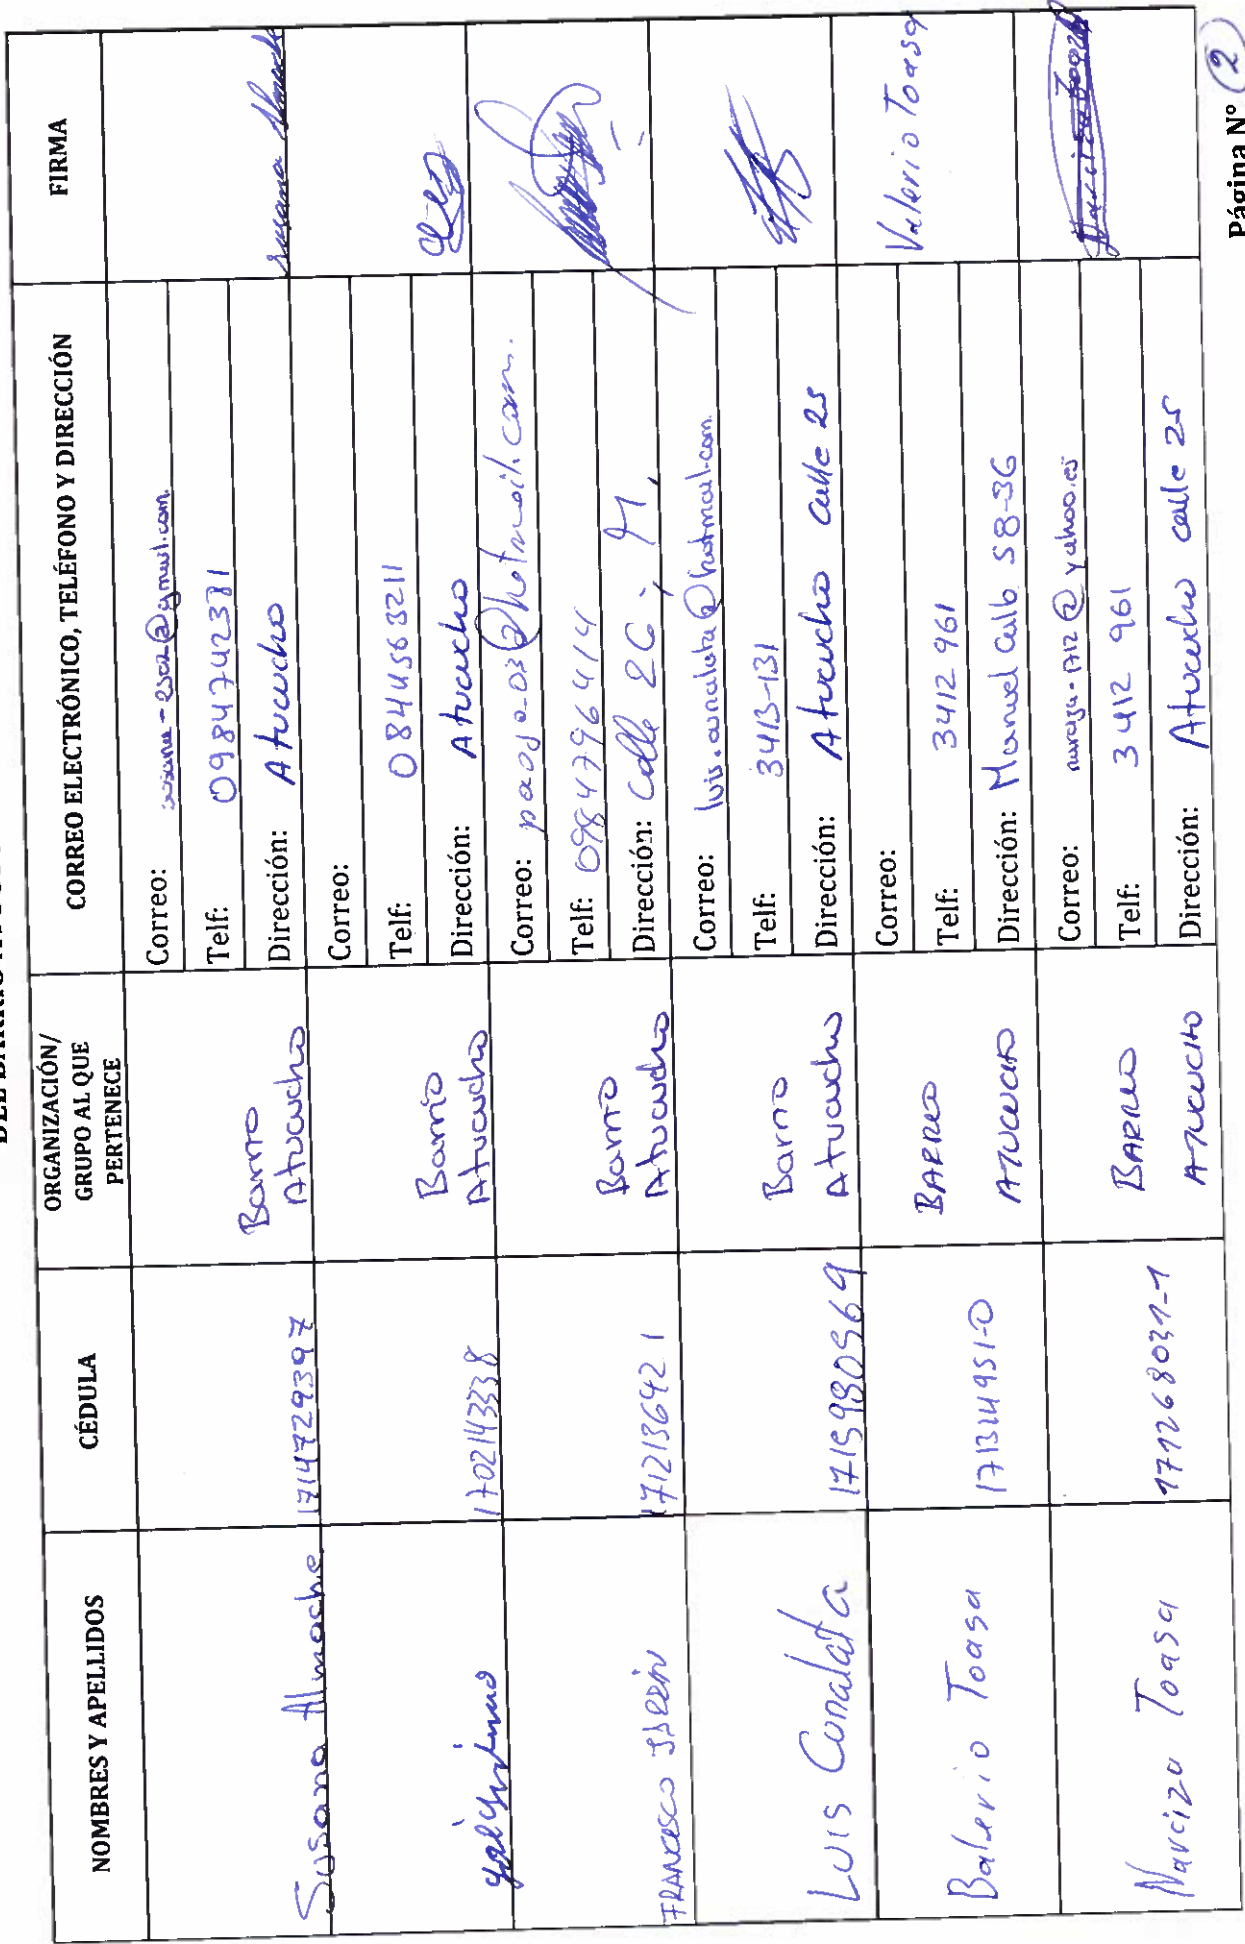 NOMBRES Y APELLIDOS
CÉDULA
ORGANIZACIÓN/
GRUPO AL QUE
PERTENECE
CORREO ELECTRÓNICO, TELÉFONO Y DIRECCIÓN
FIRMA
Susana Almache
1714729397
Barrio
Atucucho
Correo: susana-esca@gmail.com.
Telf: 0984742381
Dirección: Atucucho
Susana Almache
1702143338
Barrio
Atucucho
Correo:
Telf: 0844563211
Dirección: Atucucho
FRANCESCO
1712136421
Barrio
Atucucho
Correo: paojo-03@hotmail.com.
Telf: 0984796414
Dirección: Calle 26
LUIS Conalata
1715980569
Barrio
Atucucho
Correo: luis.cunalata@hotmail.com.
Telf: 3413-131
Dirección: Atucucho calle 25
Balerio Toasa
171314951-0
BARRIO
ATUCUCHO
Correo:
Telf: 3412 961
Dirección: Manuel Calb S8-36
Valerio Toasa
Narciza Toasa
171268031-1
BARRIO
ATUCUCHO
Correo: @yahoo.es
Telf: 3412 961
Dirección: Atucucho calle 25
Narciza Toasa
Página N° 2